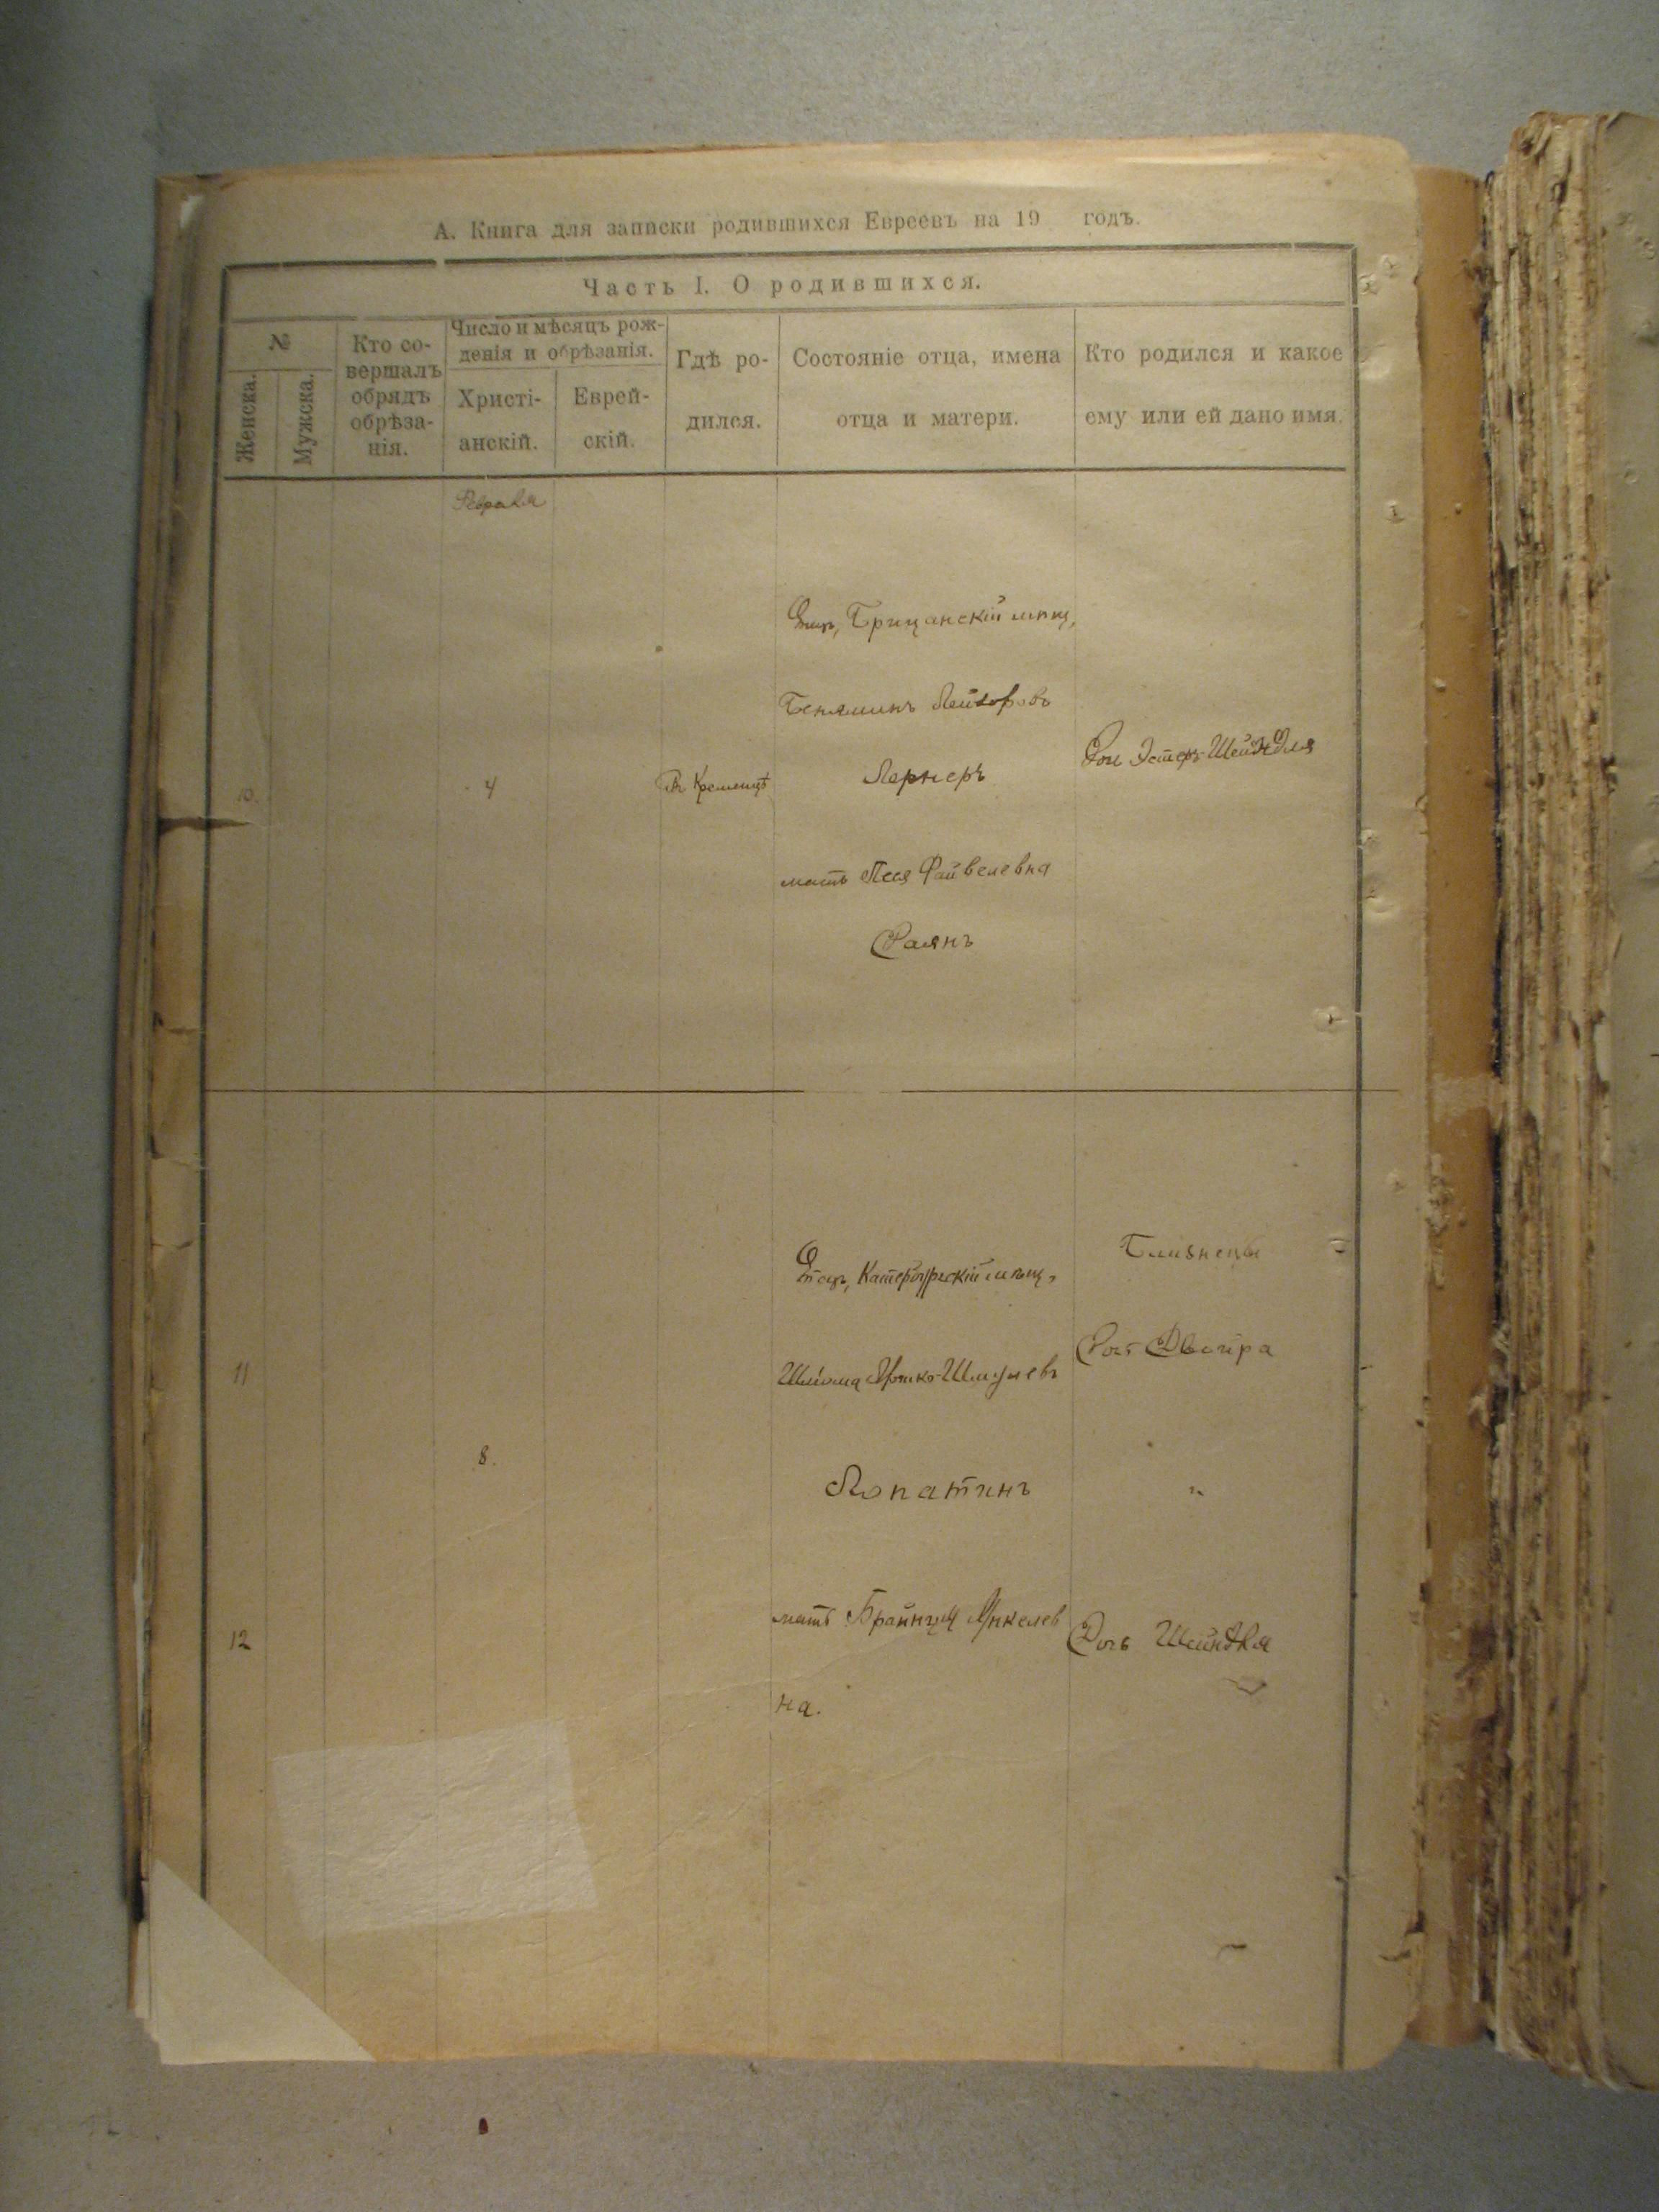 А. Книга для записки родившихся Евреевъ на 19 годъ.
Часть I. О родившихся.
№
Женска.
Мужска.
Кто со-
вершалъ
обрядъ
обрѣза-
нія.
Число и мѣсяцъ рож-
денія и обрѣзанія.
Христі-
анскій.
Еврей-
скій.
Гдѣ ро-
дился.
Состояніе отца, имена
отца и матери.
Кто родился и какое
ему или ей дано имя.
Февраля
10.
4
Въ Кременцѣ
Отецъ, Брицанскій мѣщ,
Беняминъ Лейзоровъ
Лернеръ
мать Песя Файвелевна
Дочь Эстеръ-Шейндля
11
12
8.
Отецъ, мѣщ,
Шлiома Шмулевъ
Лопатинъ
мать Янкелев
на.
Близнецы
Дочь Двойра
"
Дочь Шейндля